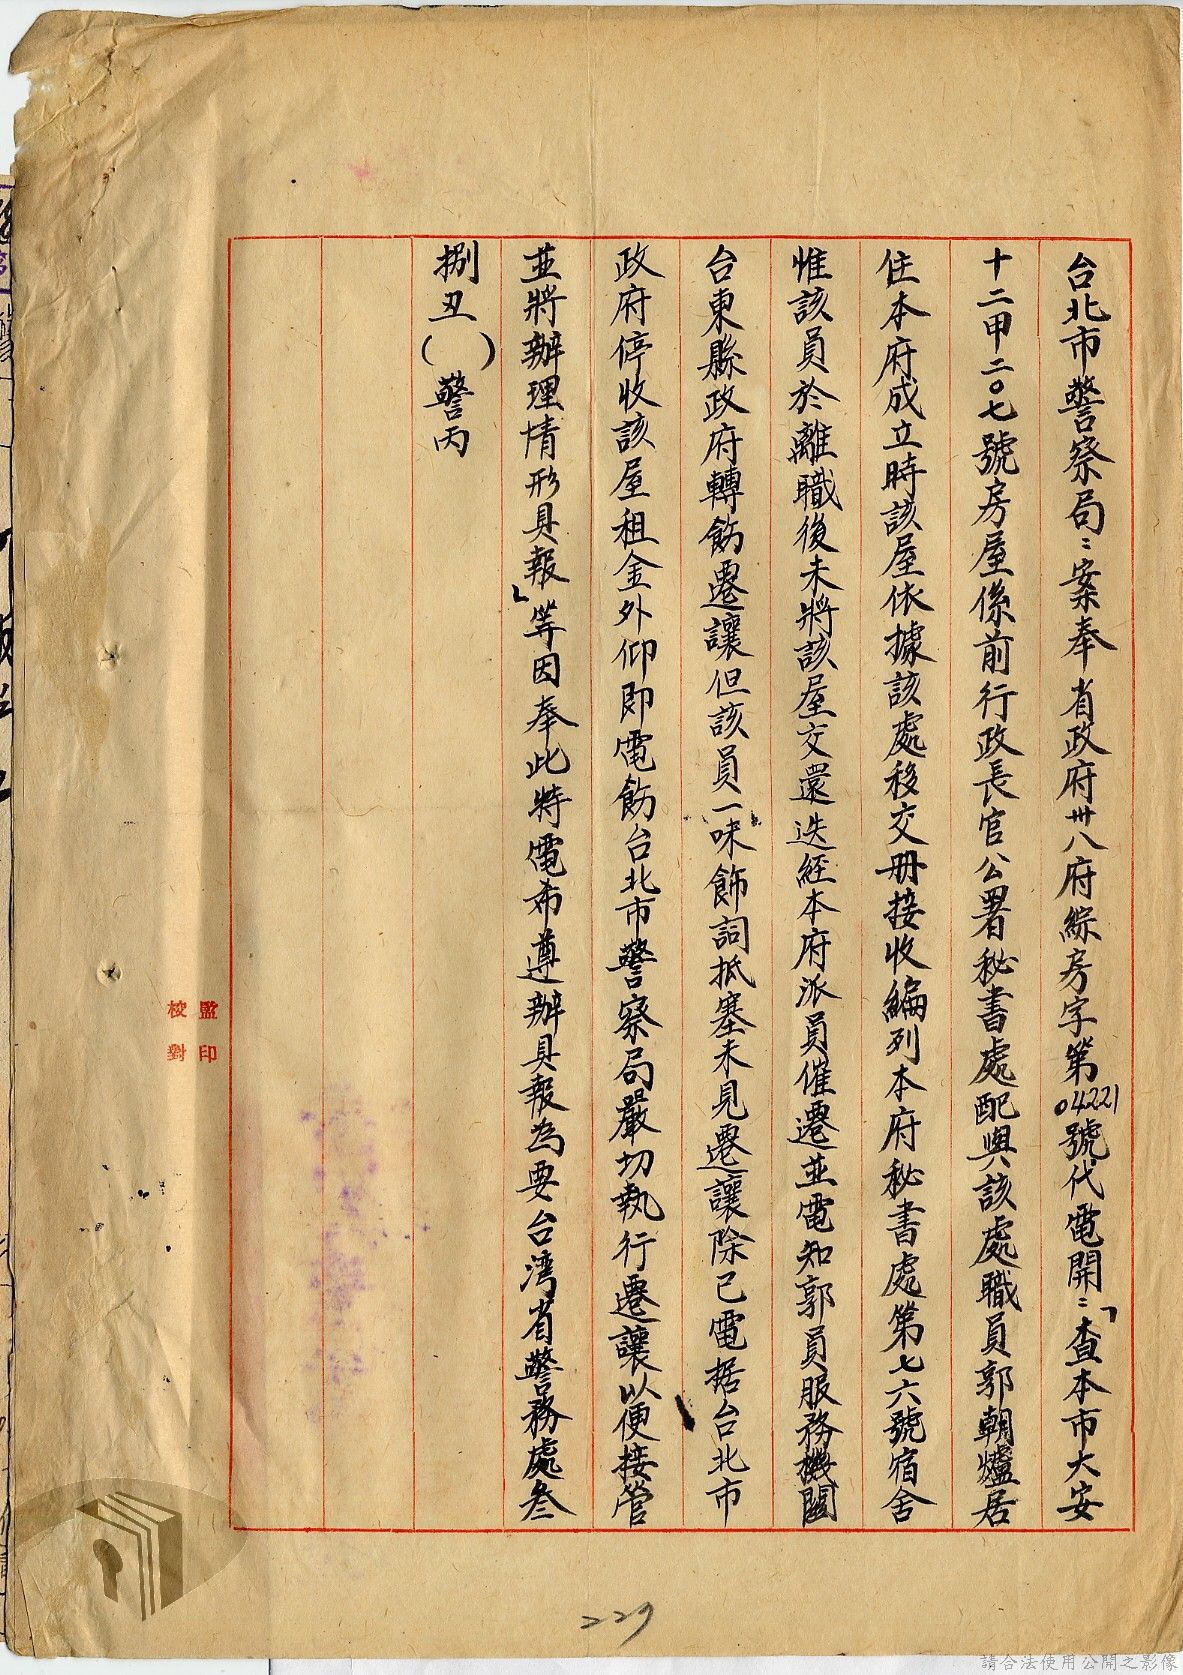 台北市警察局：案奉省政府卅八府綜房字第04221號代電開：「查本市大安
十二甲二〇七號房屋係前行政長官公署秘書處配與該處職員郭朝爐居
住本府成立時該屋依據該處移交冊接收編列本府秘書處第七六號宿舍
惟該員於離職後未將該屋交還迭經本府派員催遷並電知郭員服務機關
台東縣政府轉飭遷讓但該員一味飾詞抵塞未見遷讓除已電話台北市
政府停收該屋租金外仰即電飭台北市警察局嚴切執行遷讓以便接管
並將辦理情形具報」等因奉此特電希遵辦具報為要台湾省警務處叁
捌丑（　）警丙
監印
校對
229
請合法使用公開之影像